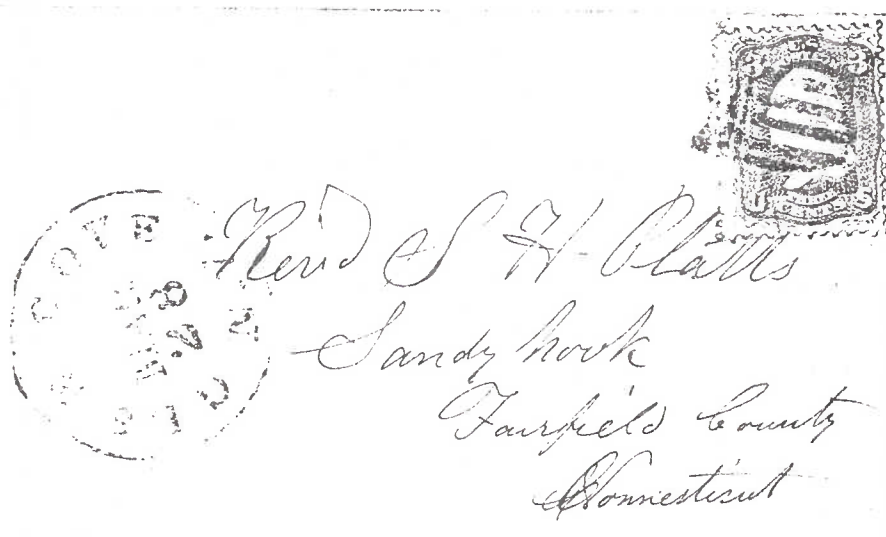 Rev'd S H Platts
Sandy hook
Fairfield County
Connecticut